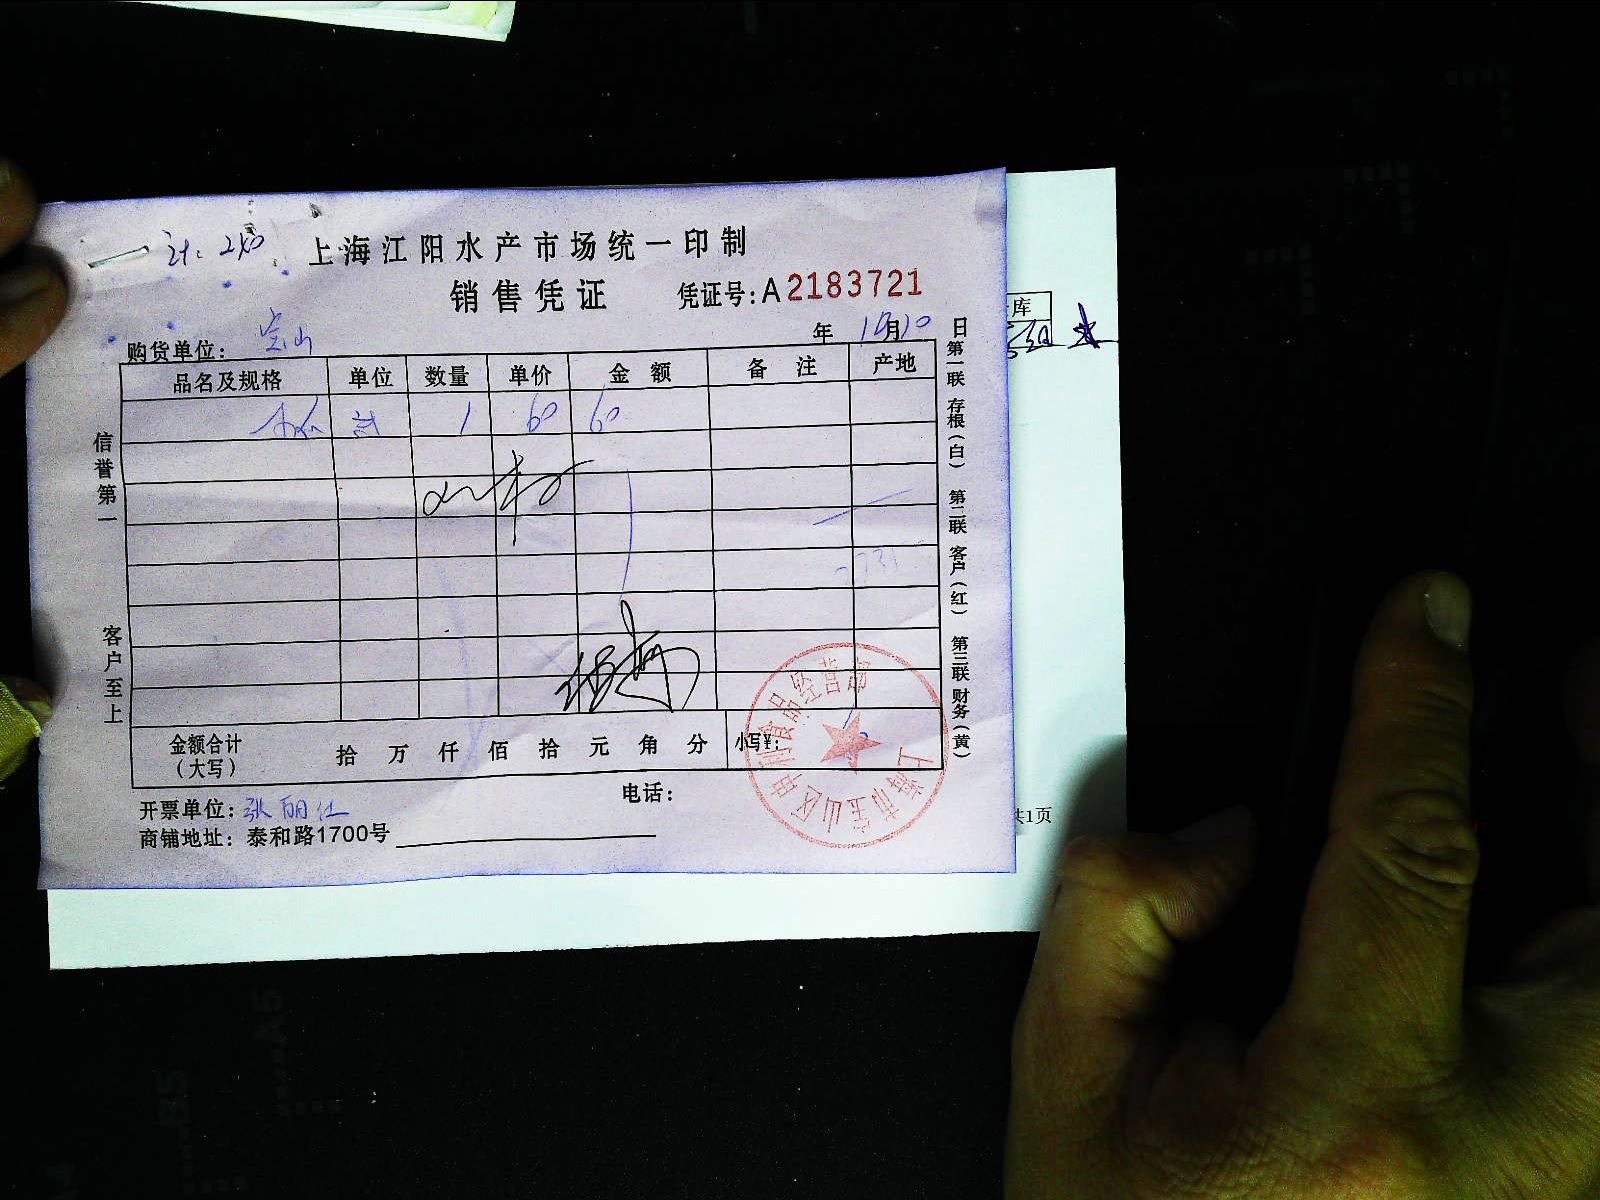 计: 240
上海江阳水产市场统一印制
销售凭证
凭证号:A2183721
购货单位: 宝山
年 10月10日
品名及规格 单位 数量 单价 金额 备注 产地
1 60 60
金额合计(大写) 拾 万 仟 佰 拾 元 角 分 小写¥:
开票单位: 张丽仕
电话:
商铺地址: 泰和路1700号
信誉第一
客户至上
第一联 存根(白) 第二联 客户(红) 第三联 财务(黄)
上海市宝山区申利食品经营部
库
共1页